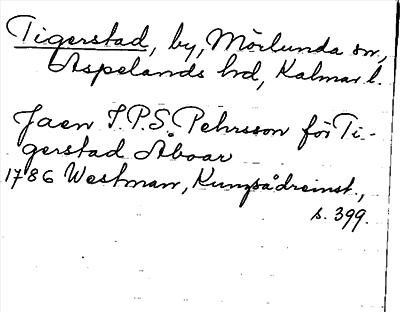 Tigerstad, by, Mörlunda sn,
Aspelands hd, Kalmar l.
Jaen J.P.S. Pehrsson för Ti-
gerstad Åboar
1786 Westman, Kungsådreinst.,
s. 399.